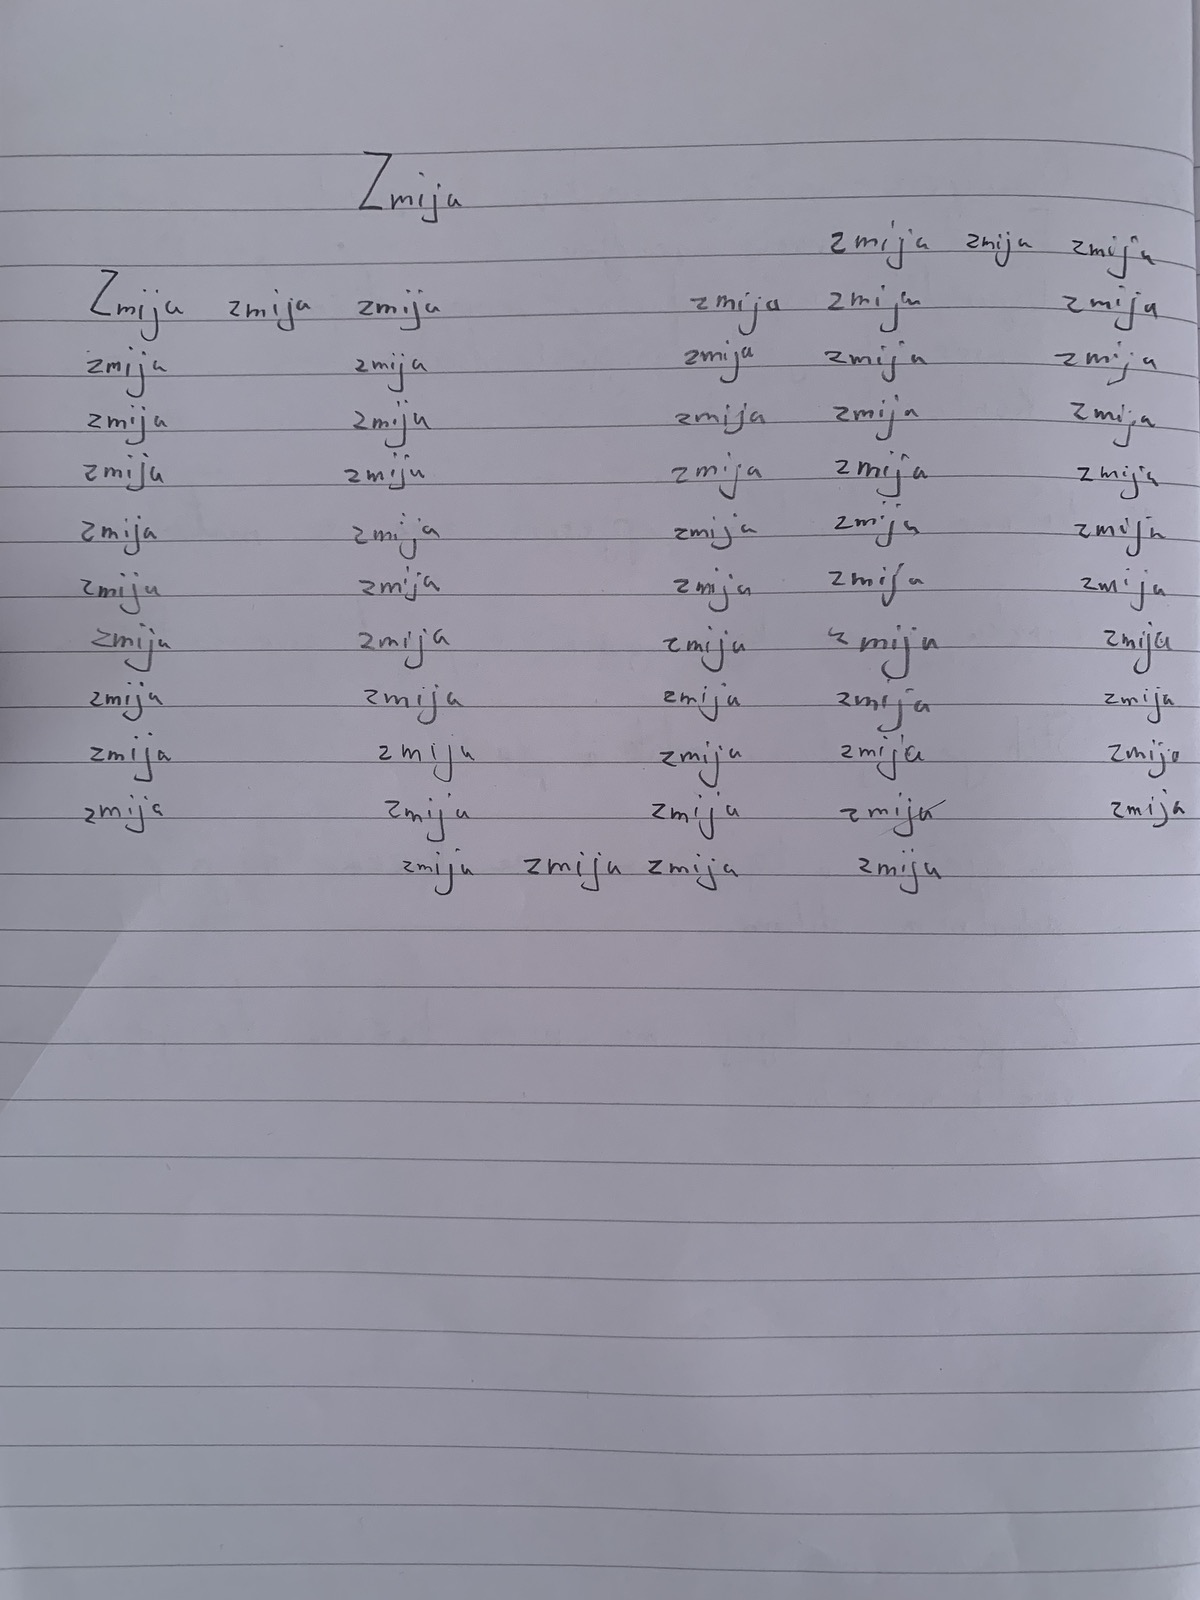 Zmija
zmija zmija zmija
Zmija zmija zmija zmija zmija zmija
zmija zmija zmija zmija zmija
zmija zmija zmija zmija zmija
zmija zmija zmija zmija zmija
zmija zmija zmija zmija zmija
zmija zmija zmija zmija zmija
zmija zmija zmija zmija zmija
zmija zmija zmija zmija zmija
zmija zmija zmija zmija zmija
zmija zmija zmija zmija zmija
zmija zmija zmija zmija